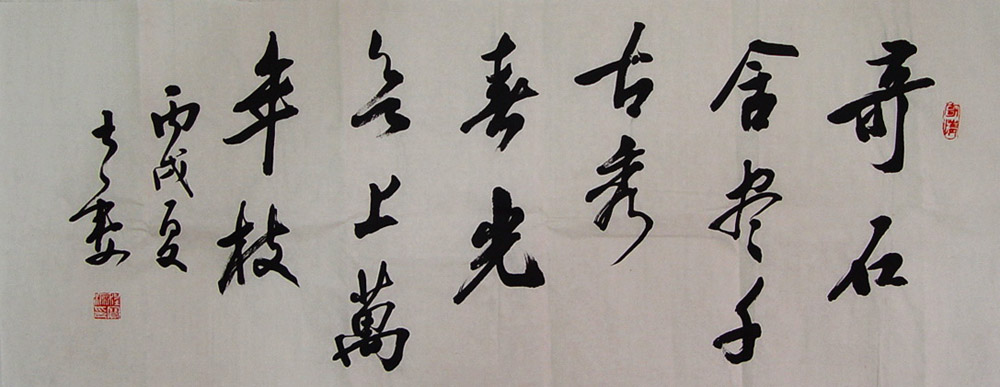 奇石
含尽千
古秀
春光
欲上萬
年枝
丙戌夏